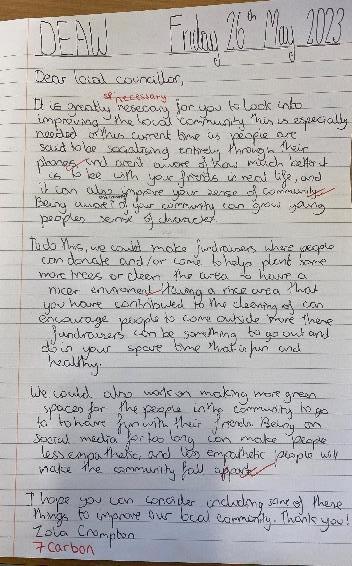 DEAW Friday 26th May 2023
Dear local councillor,
sp necessary
It is greatly nesecary for you to look into
improving the local community this is especially
needed at this current time as people are
said to be socialising entirely through their
phones and arent aware of how much better it
is to be with your friends in real life, and
it can also improve your sense of community
Being aware of your community can grow young
peoples sense of character.
To do this, we could make fundraisers where people
can donate and/or come to help plant some
more trees or clean the area to have a
nicer enviroment Having a nice area that
you have contributed to the cleaning of can
encourage people to come outside more these
fundraisers can be something to go out and
do in your spare time that is fun and
healthy.
We could also work on making more green
spaces for the people in the community to go
to to have fun with their friends Being on
social media for too long can make people
less empathetic, and less empathetic people will
make the community fall apart
I hope you can consider including some of these
things to improve our local community. Thank you!
Zola Crompton
7Carbon